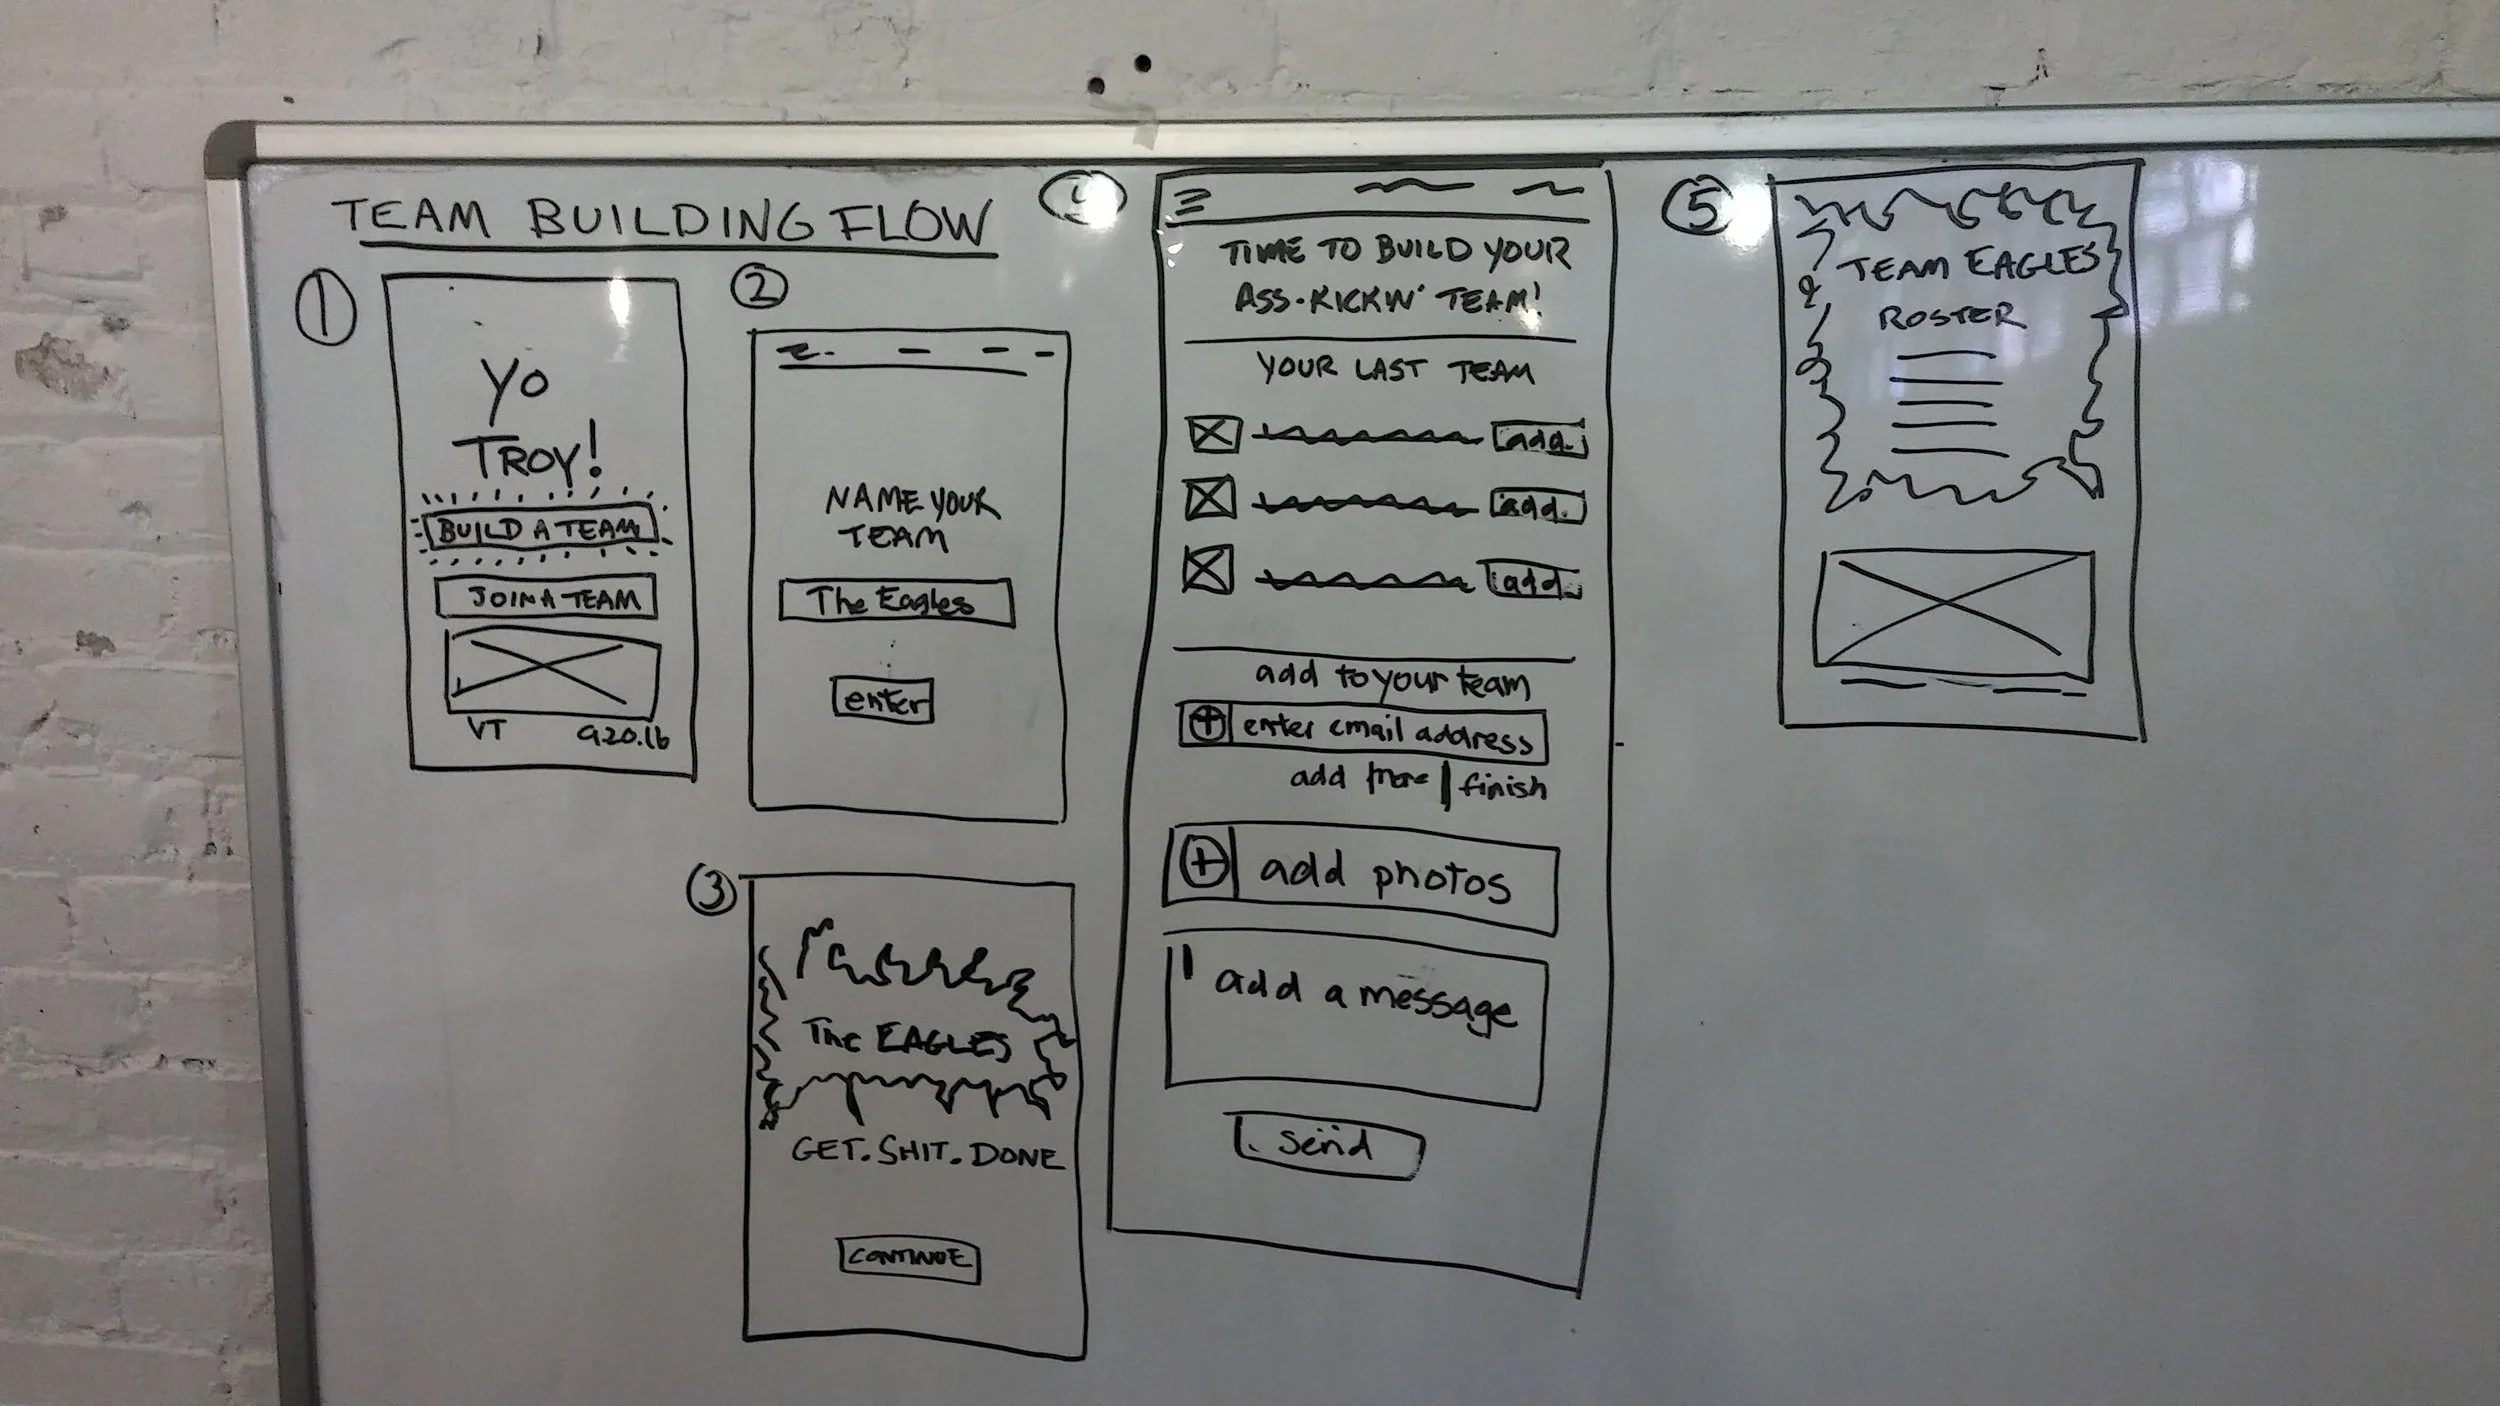 TEAM BUILDING FLOW
1
YO
TROY!
BUILD A TEAM
JOIN A TEAM
VT 9.20.16
2
NAME YOUR
TEAM
The Eagles
enter
3
The EAGLES
GET. SHIT. DONE
CONTINUE
4
TIME TO BUILD YOUR
ASS-KICKIN' TEAM!
YOUR LAST TEAM
add
add
add
add to your team
enter email address
add more | finish
add photos
add a message
send
5
TEAM EAGLES
ROSTER